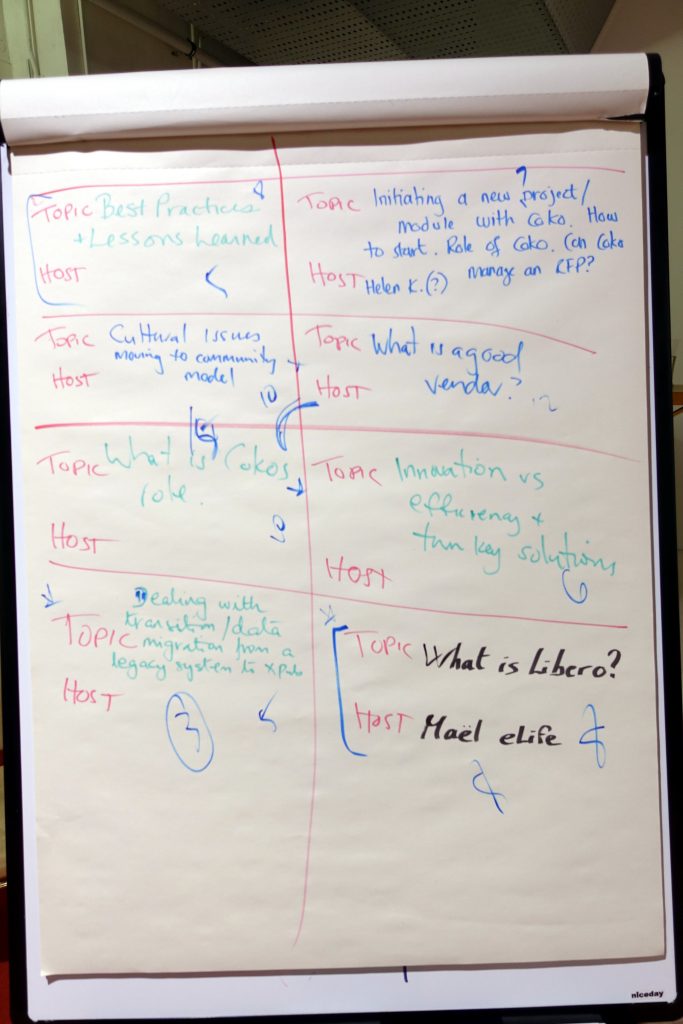 TOPIC Best Practices
+ Lessons Learned
HOST
TOPIC Initiating a new project/
module with Coko. How
to start. Role of Coko. Can Coko
manage an RFP?
HOST Helen K.(?)
TOPIC Cultural Issues
moving to community
model
HOST
10
TOPIC What is a good
vendor?
HOST
TOPIC What is Cokos
role.
HOST
9
TOPIC Innovation vs
efficiency +
turn key solutions
HOST
TOPIC Dealing with
transition/data
migration from a
legacy system to xpub
HOST
3
TOPIC What is Libero?
HOST Maël eLife
niceday